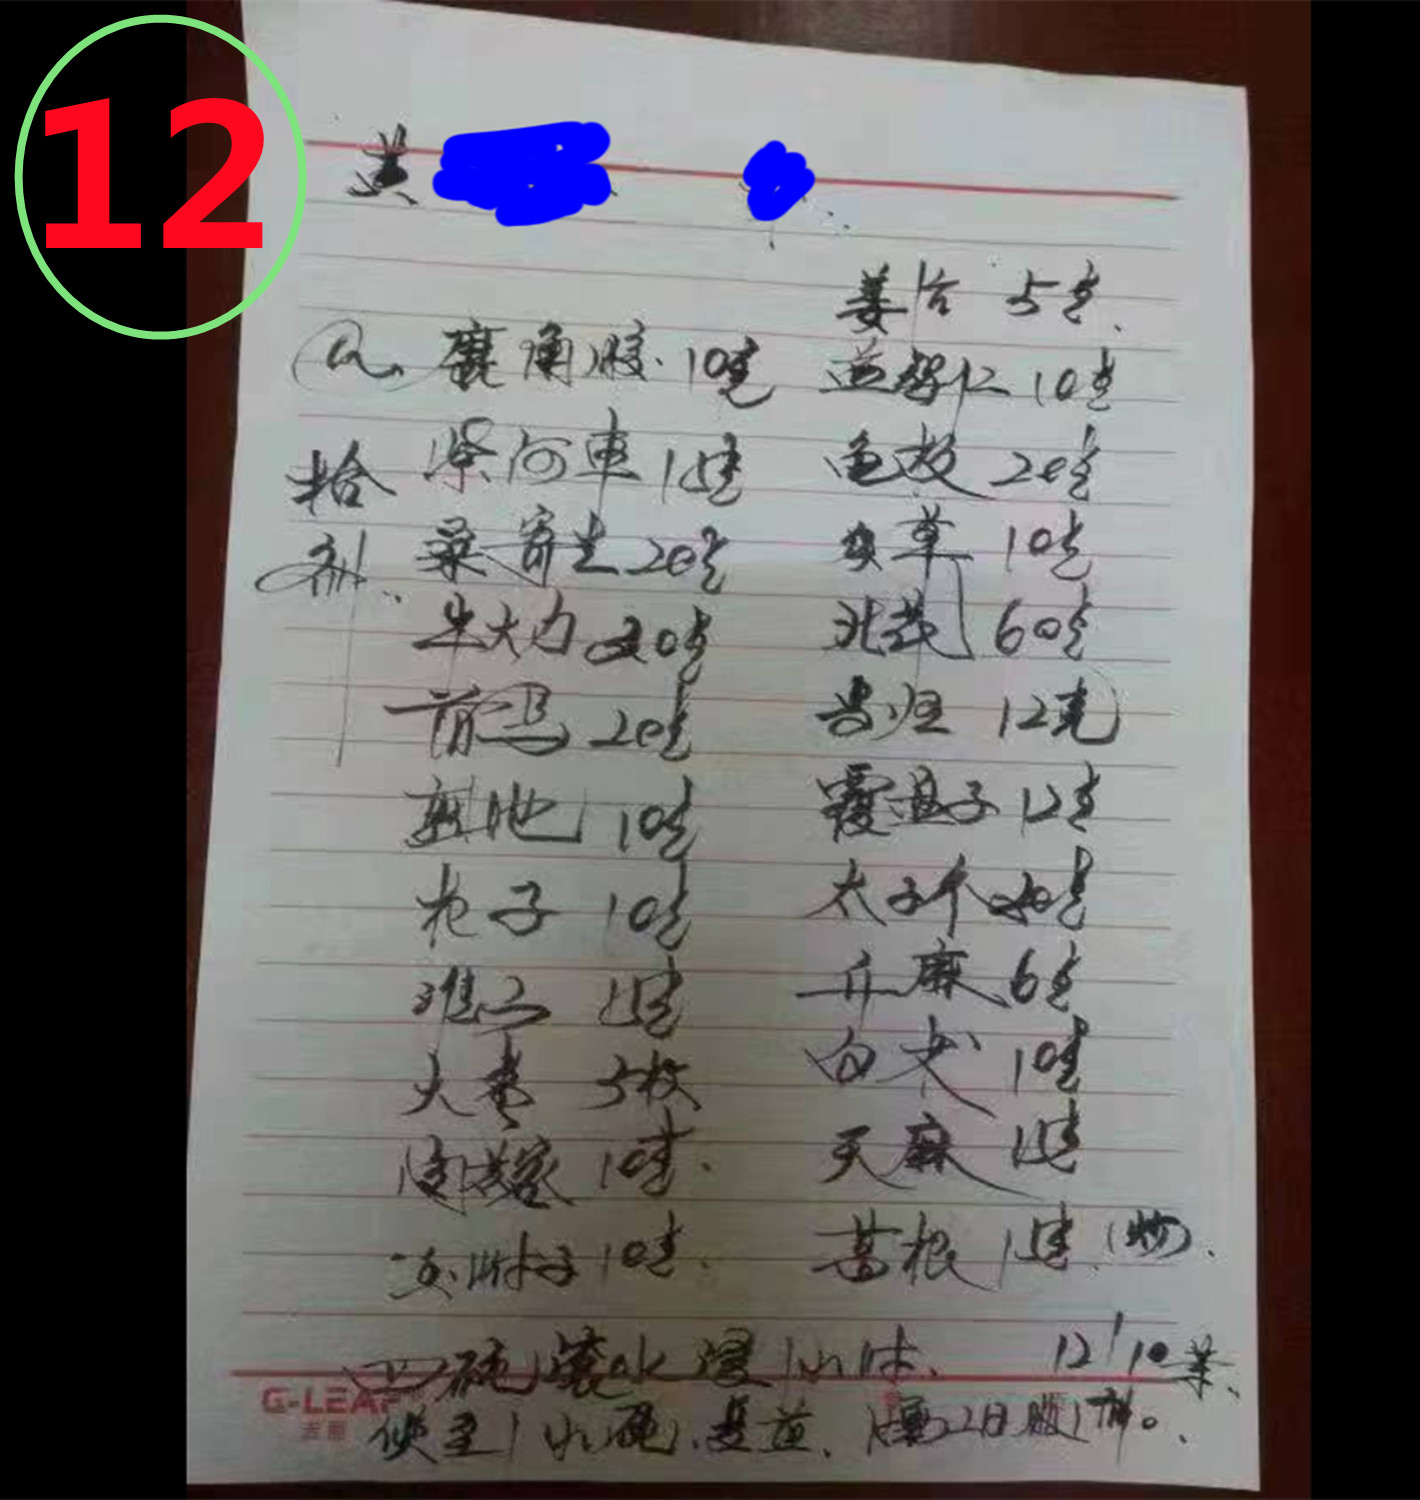 12
黄
姜合 5克
鹿角胶 10克
益智仁 10克
拾
紫河车 15克
龟板 20克
剂
桑寄生 20克
炙草 10克
牛大力 30克
北芪 60克
首乌 20克
当归 12克
熟地 10克
覆盆子 12克
杞子 10克
太子参
淮山 15克
升麻 6克
大枣 5枚
白术 10克
肉苁蓉 10克
天麻 15克
女贞子 10克
葛根 15克 (炒)
四碗滚水浸1小时
12/10
煲至1小碗
隔2日服1剂。
G-LEAF